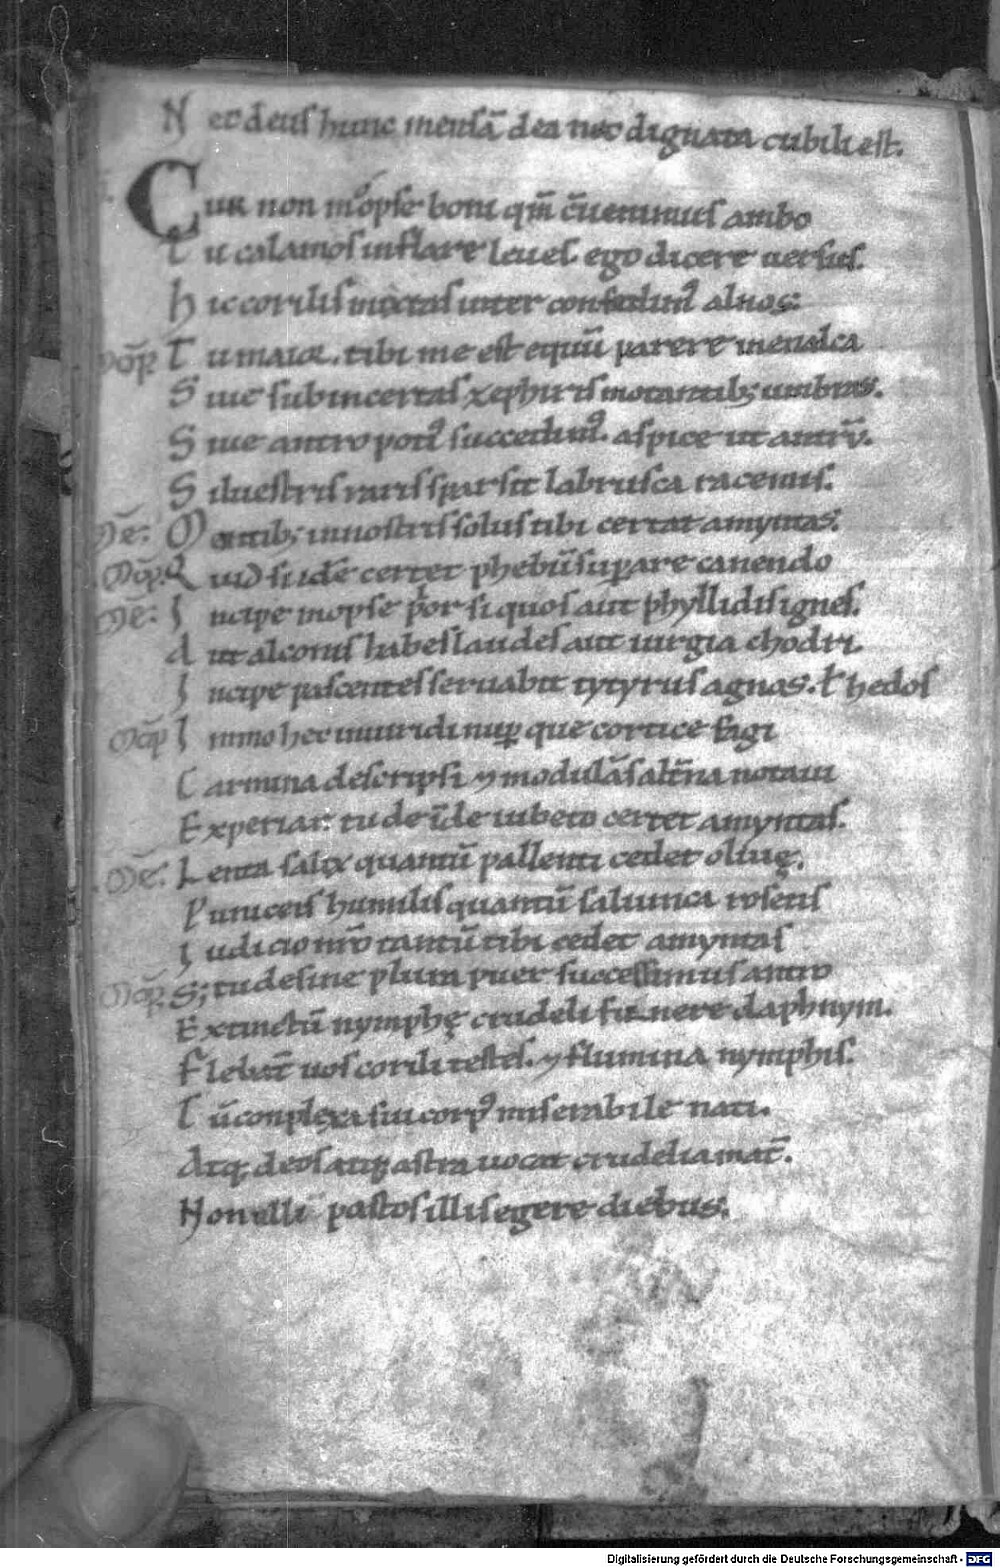 N ec deus hunc mensā dea nec dignata cubili est.
Cur non mopse boni qm̄ c̄uenimus ambo
T u calamos inflare leues. ego dicere uersus.
h ic corilis mixtas inter consedim⁹ alnos:
Mop̄ T u maior. tibi me est equū parere menalca
S iue sub incertas zephiris motantib; umbras.
S iue antro poti⁹ succedim⁹. aspice ut antrū.
S iluestris raris sparsit labrusca racemis.
Me: M ontib; in nostris solus tibi certat amyntas.
Mop. Q uid si idē certet phebū sup̱are canendo
Me: I ncipe mopse p̄or si quos aut phyllidis ignes.
A ut alconis habes laudes aut iurgia chodri.
I ncipe pascentes seruabit tytyrus agnas. ł hedos
Mop̄ I mmo hec in uiridi nup̱ que cortice fagi
C armina descripsi & modulās alt̄na notaui
Experiar: tu deīde iubeto certet amyntas.
Me: Lenta salix quantū pallenti cedet oliuę.
Puniceis humilis quantū saliunca rosetis
I udicio nr̄o tantū tibi cedet amyntas
Mop̄. S; tu desine plura puer successimus antro
Extinctū nymphę crudeli funere daphnym.
Flebāt uos corili testes. & flumina nymphis.
T ū conplexa sui corp⁹ miserabile nati.
Atq; deos atq; astra uocat crudelia mat̄.
Non ulli pastos illis egere diebus.
Digitalisierung gefördert durch die Deutsche Forschungsgemeinschaft - DFG